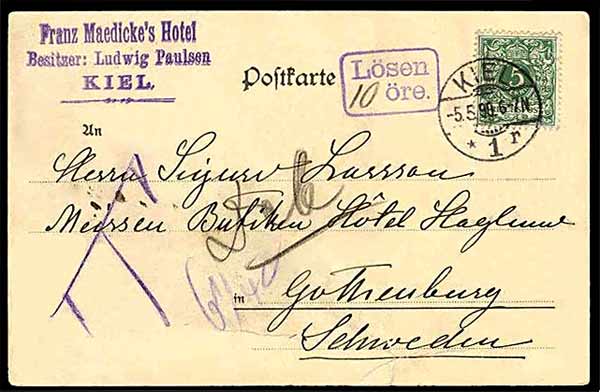 Franz Maedicke's Hotel
Besitzer: Ludwig Paulsen
KIEL.
Postkarte
Lösen
10 öre.
5
KIEL
-5.5.90.6-7N.
* 1 r
An
Herrn Sigurd Larsson
Meissen Butiken Hôtel Haglund
in Gothenburg
Schweden